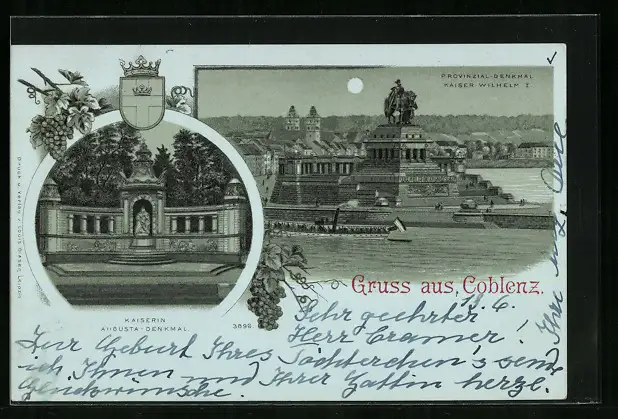 PROVINZIAL-DENKMAL
KAISER WILHELM I
KAISERIN
AUGUSTA-DENKMAL
3899
Gruss aus Coblenz.
Sehr geehrter
Herr Cramer!
Zur Geburt Ihres Töchterchen's sende
ich Ihnen und Ihrer Gattin herzl.
Glückwünsche.
Ihr
Druck u. Verlag v. Louis Glaser, Leipzig